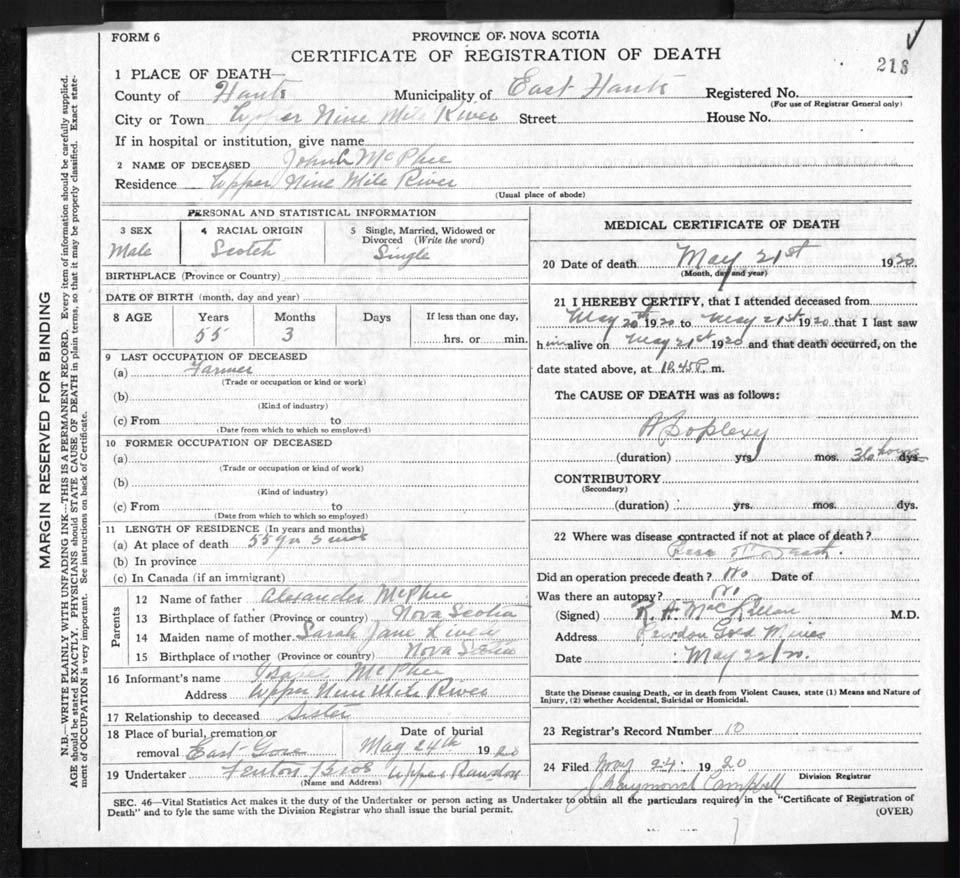 FORM 6
PROVINCE OF NOVA SCOTIA
CERTIFICATE OF REGISTRATION OF DEATH
213
1 PLACE OF DEATH—
County of Hants Municipality of East Hants Registered No.
(For use of Registrar General only)
City or Town Upper Nine Mile River Street House No.
If in hospital or institution, give name
2 NAME OF DECEASED McPhee
Residence Upper Nine Mile River
(Usual place of abode)
MARGIN RESERVED FOR BINDING
N.B.—WRITE PLAINLY WITH UNFADING INK—THIS IS A PERMANENT RECORD. Every item of information should be carefully supplied.
AGE should be stated EXACTLY. PHYSICIANS should STATE CAUSE OF DEATH in plain terms, so that it may be properly classified. Exact state-
ment of OCCUPATION is very important. See instructions on back of Certificate.
PERSONAL AND STATISTICAL INFORMATION
3 SEX
Male
4 RACIAL ORIGIN
Scotch
5 Single, Married, Widowed or
Divorced (Write the word)
Single
BIRTHPLACE (Province or Country)
DATE OF BIRTH (month, day and year)
8 AGE Years Months Days If less than one day,
55 3 hrs. or min.
9 LAST OCCUPATION OF DECEASED
(a) Farmer
(Trade or occupation or kind of work)
(b)
(Kind of industry)
(c) From to
(Date from which to which so employed)
10 FORMER OCCUPATION OF DECEASED
(a)
(Trade or occupation or kind of work)
(b)
(Kind of industry)
(c) From to
(Date from which to which so employed)
11 LENGTH OF RESIDENCE (In years and months)
(a) At place of death 55 yrs 3 mos
(b) In province
(c) In Canada (if an immigrant)
Parents
12 Name of father Alexander McPhee
13 Birthplace of father (Province or country) Nova Scotia
14 Maiden name of mother Sarah Jane
15 Birthplace of mother (Province or country) Nova Scotia
16 Informant's name McPhee
Address Upper Nine Mile River
17 Relationship to deceased Sister
18 Place of burial, cremation or
removal East Gore
Date of burial
May 24th 1920
19 Undertaker Fenton Bros Upper Rawdon
(Name and Address)
MEDICAL CERTIFICATE OF DEATH
20 Date of death May 21st 1920
(Month, day and year)
21 I HEREBY CERTIFY, that I attended deceased from
May 20th 1920 to May 21st 1920 that I last saw
him alive on May 21st 1920 and that death occurred, on the
date stated above, at 10.45 P. m.
The CAUSE OF DEATH was as follows:
Apoplexy
(duration) yrs. mos. 36 hours dys.
CONTRIBUTORY
(Secondary)
(duration) yrs. mos. dys.
22 Where was disease contracted if not at place of death?
Place of Death.
Did an operation precede death? No Date of
Was there an autopsy? No
(Signed) R. H. M.D.
Address Rawdon Gold Mines
Date May 22/20.
State the Disease causing Death, or in death from Violent Causes, state (1) Means and Nature of
Injury, (2) whether Accidental, Suicidal or Homicidal.
23 Registrar's Record Number 10
24 Filed May 24. 1920
Raymond Campbell
Division Registrar
SEC. 46—Vital Statistics Act makes it the duty of the Undertaker or person acting as Undertaker to obtain all the particulars required in the "Certificate of Registration of
Death" and to fyle the same with the Division Registrar who shall issue the burial permit.
(OVER)